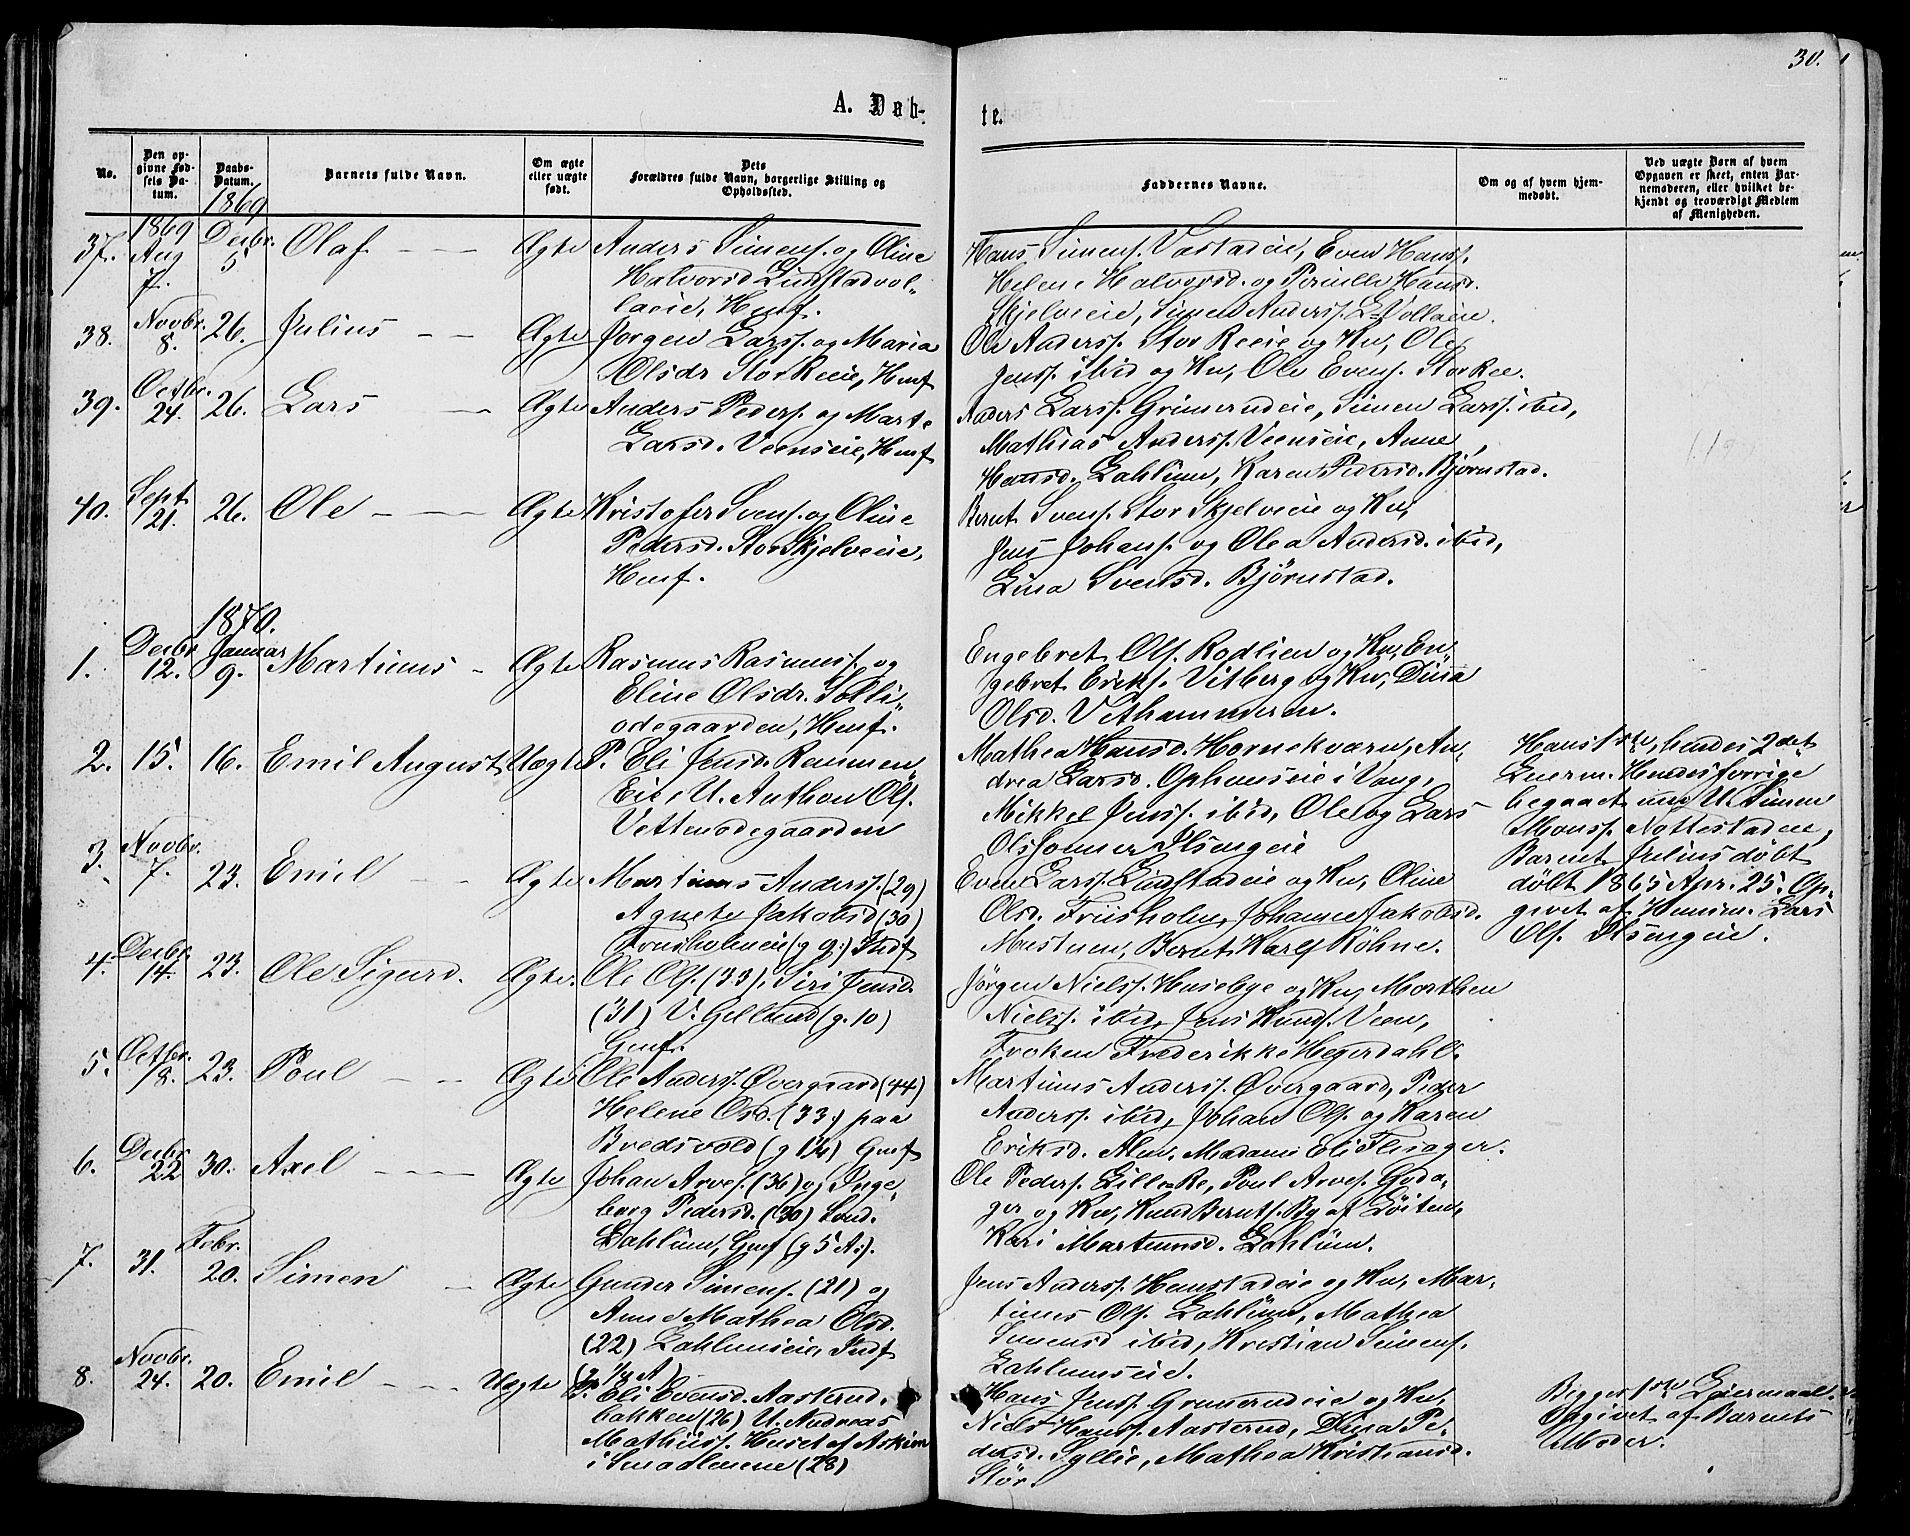 30.
A. Døb-
te.
No.
Den op-
givne Fød-
sels Da-
tum.
Daabs-
Datum.
Barnets fulde Navn.
Om ægte
eller uægte
født.
Dets
Forældres fulde Navn, borgerlige Stilling og
Opholdssted.
Faddernes Navne.
Om og af hvem hjem-
medøbt.
Ved uægte Børn af hvem
Opgaven er skeet, enten Bar-
nemoderen, eller hvilket be-
kjendt og troværdigt Medlem
af Menigheden.
1869
1869
37. Aug 7. Decbr. 5 Olaf Ægte
Anders Simens. og Oline
Halvorsd Lindstadvol-
laeie, Huf.
Hans Simens. Vastadeie, Even Hanss.
Helene Halvorsd. og Pernille Hansd.
Skjelveeie, Simen Anderss. L-Vollaeie.
38. Novbr. 8. 26. Julius Ægte
Jørgen Larss. og Maria
Olsdr StorReeie, Huf
Ole Anderss. Stor Reeie og Ku, Ole
Jenss. ibid og Ku, Ole Evens. StorRee.
39. Octbr. 24. 26. Lars Ægte
Anders Peders. og Marte
Larsd. Veenseie, Huf
Anders Larss. Grimerudeie, Simen Larss. ibid,
Mathias Anderss. Veenseie, Anne
Hansd. Zahlum, Karen Pedersd. Bjørnstad.
40. Sept 21. 26. Ole Ægte
Kristofer Svens. og Oline
Pedersd. StorSkjelveeie,
Huf.
Bernt Svens. Stor Skjelveeie og Ku,
Jens Johans. og Olea Andersd. ibid,
Lina Svensd. Bjørnstad.
1870.
1. Decbr 12. Januar 9. Martinus Ægte
Rasmus Rasmuss. og
Eline Olsdr. Solli-
ødegaarden, Huf.
Engebret Ols. Rodlien og Ku, En-
gebret Eriks. Vitberg og Ku, Dina
Olsd. Vethammeren.
2. 15. 16. Emil August Uægte
P. Eli Jensd. Remmen
Eie, U. Anthon Ols.
Vettenødegaarden
Mathea Hansd. Hornekværn, An-
drea Larsd. Ophuuseie i Vang,
Mikkel Jenss. ibid, Ole og Lars
Olssønner Ilsengeie
Hans 1ste, hendes 2det
Leierm. Hendes forrige
begaaet med U. Simen
Monss. Nottestadeie,
Barnet Julius døbt
døbt 1865 Apr. 25. Op-
givet af Husm. Lars
Ols. Ilsengeie.
3. Novbr. 7. 23. Emil Ægte
Martinus Anderss. (29)
Agnete Jakobsd (30)
Friisholmeie (g 9.) Indf
Even Larss. Lindstadeie og Ku, Oline
Olsd. Friisholm, Johanne Jakobsd.
Mustuen, Bernt Karls Røhne.
4. Decbr. 14. 23. Ole Sigurd. Ægte.
Ole Ols. (33), Siri Jensd.
(31) V. Gelland (g. 10)
Guf.
Jørgen Nielss. Husebye og Ku, Morthen
Nielss. ibid, Jens Knuds. Veen,
Frøken Frederikke Hegerdahl.
5. Octbr. 18. 23. Poul Ægte
Ole Anderss. Øvergaard (44)
Helene Osd. (33) paa
Bredsvold (g 14) Guf
Martinus Anderss. Øvergaard, Peder
Anderss. ibid, Johan Ols. og Karen
Eriksd. Alm. Madame Eli Flisager.
6. Decbr 22 30. Axel Ægte
Johan Arves. (36) og Inge-
borg Pedersd. (30) Sønd.
Zahlum, Guf (g 5 A.).
Ole Peders. LilleRe, Poul Arves. Goda-
ger og Ku, Knud Bernts. By af Løiten,
Kari Martinusd. Zahlum.
7. 31. Febr. 20. Simen Ægte
Gunder Simens. (21) og
Anne Mathea Olsd.
(22) Zahlumseie, Indf
(g 1/4 A)
Jens Anderss. Hemstadeie og Ku, Mar-
tinus Ols. Zahlum, Mathea
Simensd ibid, Kristian Simens.
Zahlumseie.
8. Novbr. 24. 20. Emil Uægte
P. Eli Evensd. Aasterud-
bakken (26) U. Andreas
Mathiss. Huset af Askim
i Smaalenene (28)
Hans Jenss. Grimerudeie og Ku,
Niels Hanss. Aasterud, Dina Pe-
dersd. Syllie, Mathea Kristiansd.
Stør.
Begges 1ste Leiermaal.
Opgivet af Barnets
Moder.